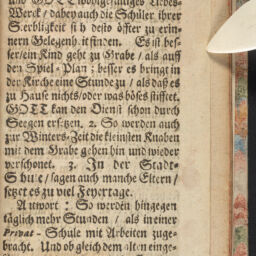 und GOTT wohlgefälliges Liebes-
Werck / dabey auch die Schüler ihrer
Sterbligkeit sich desto öffter zu erin-
nern Gelegenheit finden. Es ist bes-
ser / ein Kind geht zu Grabe / als auff
den Spiel-Plan; besser es bringt in
der Kirche eine Stunde zu / als daß es
zu Hause nichts / oder was böses stifftet.
GOTT kan den Dienst schon durch
Seegen ersetzen. 2. So werden auch
zur Winters-Zeit die kleinsten Knaben
mit dem Grabe gehen hin und wieder
verschonet. 3. In der Stadt-
Schule / sagen auch manche Eltern /
setzet es zu viel Feyertage.
Antwort: So werden hingegen
täglich mehr Stunden / als in einer
Privat-Schule mit Arbeiten zuge-
bracht. Und ob gleich dem alten einge-